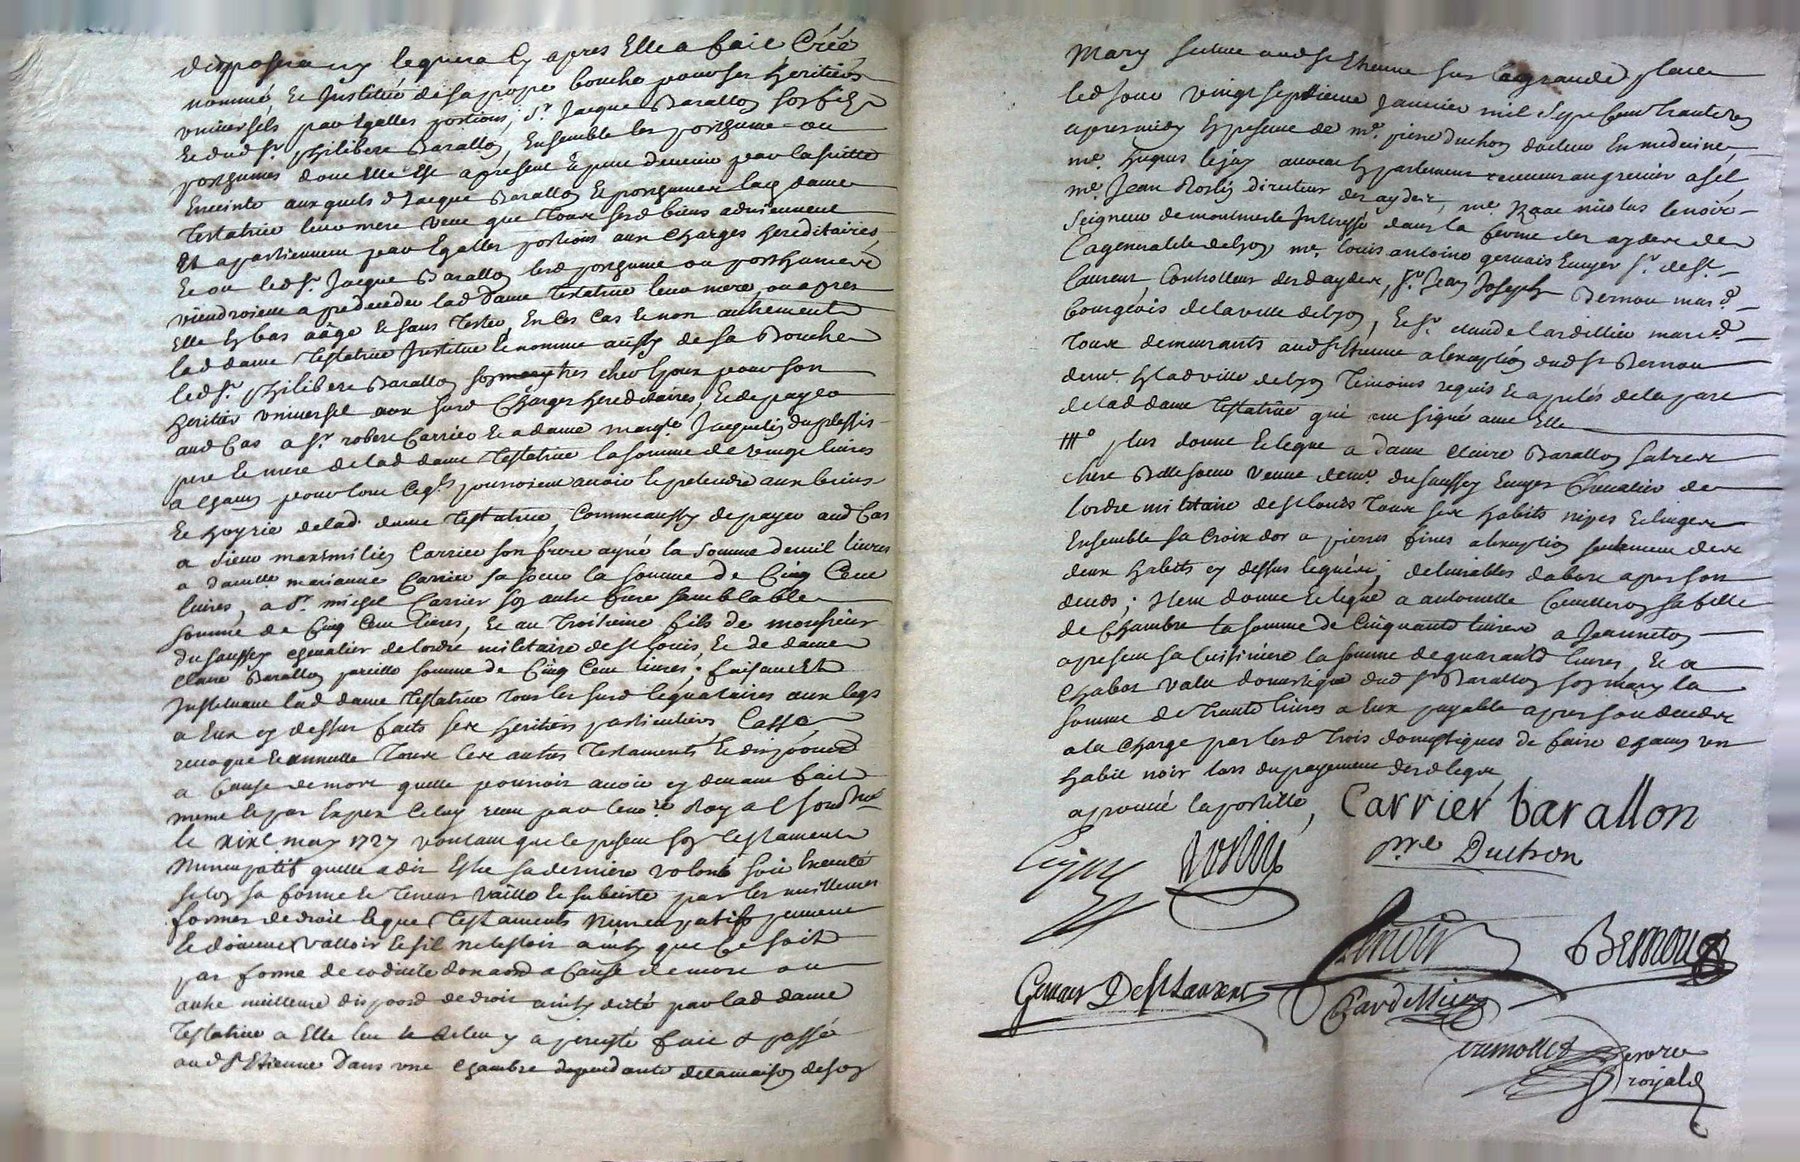 disposera cy lequera Cy apres Elle a fait Créé
nommé, Et Institué de sa propre bouche pour ses heritiers
universels par Egalles portions, Sr. Jacque Barallon son fils
Et dud Sr. philibere Barallon, Ensemble les posthume ou
posthumes donc elle Est a present Et peut devenir par la suitte
Enceinte auxquels d Jacque Barallon Et posthumes lad dame
Testatrice leur mere veut que Tous sesd biens adviennent
Et apartiennent par Egalles portions aux Charges hereditaires
Et ou led Sr. Jacque Barallon lesd posthume ou posthumes
viendroient a predeceder lad dame Testatrice leur mere, ou apres
Elle En bas aâge Et sans Tester, En Ces Cas Et non autrement
lad dame Testatrice Institue Et nomme aussy de sa Bouche
led Sr. philibere Barallon son tres cher Epoux pour son
heritier universel aux susd Charges hereditaires, Et de payer
aud Cas a Sr. robere Carrier Et a dame margte. Jacquelin duplessis
pere Et mere de lad dame Testatrice la somme de vingt livres
a Chacun pour tout Ce qls pourroient avoir Et pretendre aux biens
Et hoyrie de lad. dame Testatrice, Comme aussy de payer aud Cas
a sieur maximilien Carrier son frere ayné la somme de mil livres
a damlle. marianne Carrier sa soeur la somme de Cinq Cent
livres, a Sr. michel Carrier son autre frere semblable
somme de Cinq Cent livres, Et au Troisieme fils de monsieur
du saussey chevalier de lordre militaire de St Louis, Et de dame
Claire Barallon pareille somme de Cinq Cent livres; faisant Et
Instituant lad dame Testatrice Tous les susd legataires aux legs
a Eux cy dessus faits ses heritiers particuliers, Casse
revoque Et annulle Tous les autres Testaments Et disp̃oons
a Cause de mort quelle pourroit avoir cy devant fait
meme Et par Expres Celuy receu par le nore. Roy al soubné
le xixe may 1727 voulant que le present son Testament
Nuncupatif quelle a dit Estre sa derniere volonté soit Executé
selon sa forme Et Teneur vaille Et subsiste par les meilleures
formes de droit Et que Testaments Nuncupatifs peuvent
Et doivent valloir Et sil ne Estoit ainsy que Ce soit
par forme de codicile donaõn a Cause de mort ou
autre meilleure dispoõn de droit ainsy dicté par lad dame
Testatrice a Elle leu Et releu y a persisté fait & passé
aud St Etienne Dans une Chambre dependante de la maison de son
Mary scitue aud St Etienne sur la grande place
led jour vingt septieme Janvier mil Sept Cent Trente
apres midy En presence de mr. pierre Duchon docteur En medecine,
me. hugues lejay avocat En parlement receveur au grenier a sel,
mr. Jean Roslin directeur des aydes, mr. Izaac nicolas lenoir
Seigneur de Interessé dans la ferme des aydes de
la generalité de Lyon mr. louis antoine gervais Ecuyer Sr. de St.
laurent Controlleur desd aydes, Sr. Jean Joseph Bernou mard.
bourgeois de la ville de Lyon, Et Sr. claude lardillier marcd.
Tous demeurants aud St Etienne a lexception dud Sr Bernou
demt. En lad ville de Lyon Temoins requis Et apelés de la part
de lad dame Testatrice qui ont signé avec Elle
plus donne Et legue a dame claire Barallon sa tres
chere Belle soeur veuve de mr. du saussey Ecuyer Chevalier de
lordre militaire de St louis Tous ses habits nipes Et linges
Ensemble sa Croix dor a pierres fines a lexception seulement des
deux habits cy dessus legués; delivrables dabord apres son
deces; Item donne Et legue a antoinette sa fille
de Chambre la somme de Cinquante livres a Jeanneton
a present sa Cuisiniere la somme de quarante livres, Et a
Chabot valet domestique dud Sr Barallon son mary la
somme de Trente livres a Eux payable apres son deces
a la Charge par lesd Trois domestiques de faire chacun un
habit noir lors du payement desd legs
aprouvé lapostille, Carrier barallon
Lejay Roslin pre. Duchon
Lenoir Bernou
Gervais De St Laurent Lardillier
tremollet Nore
royal